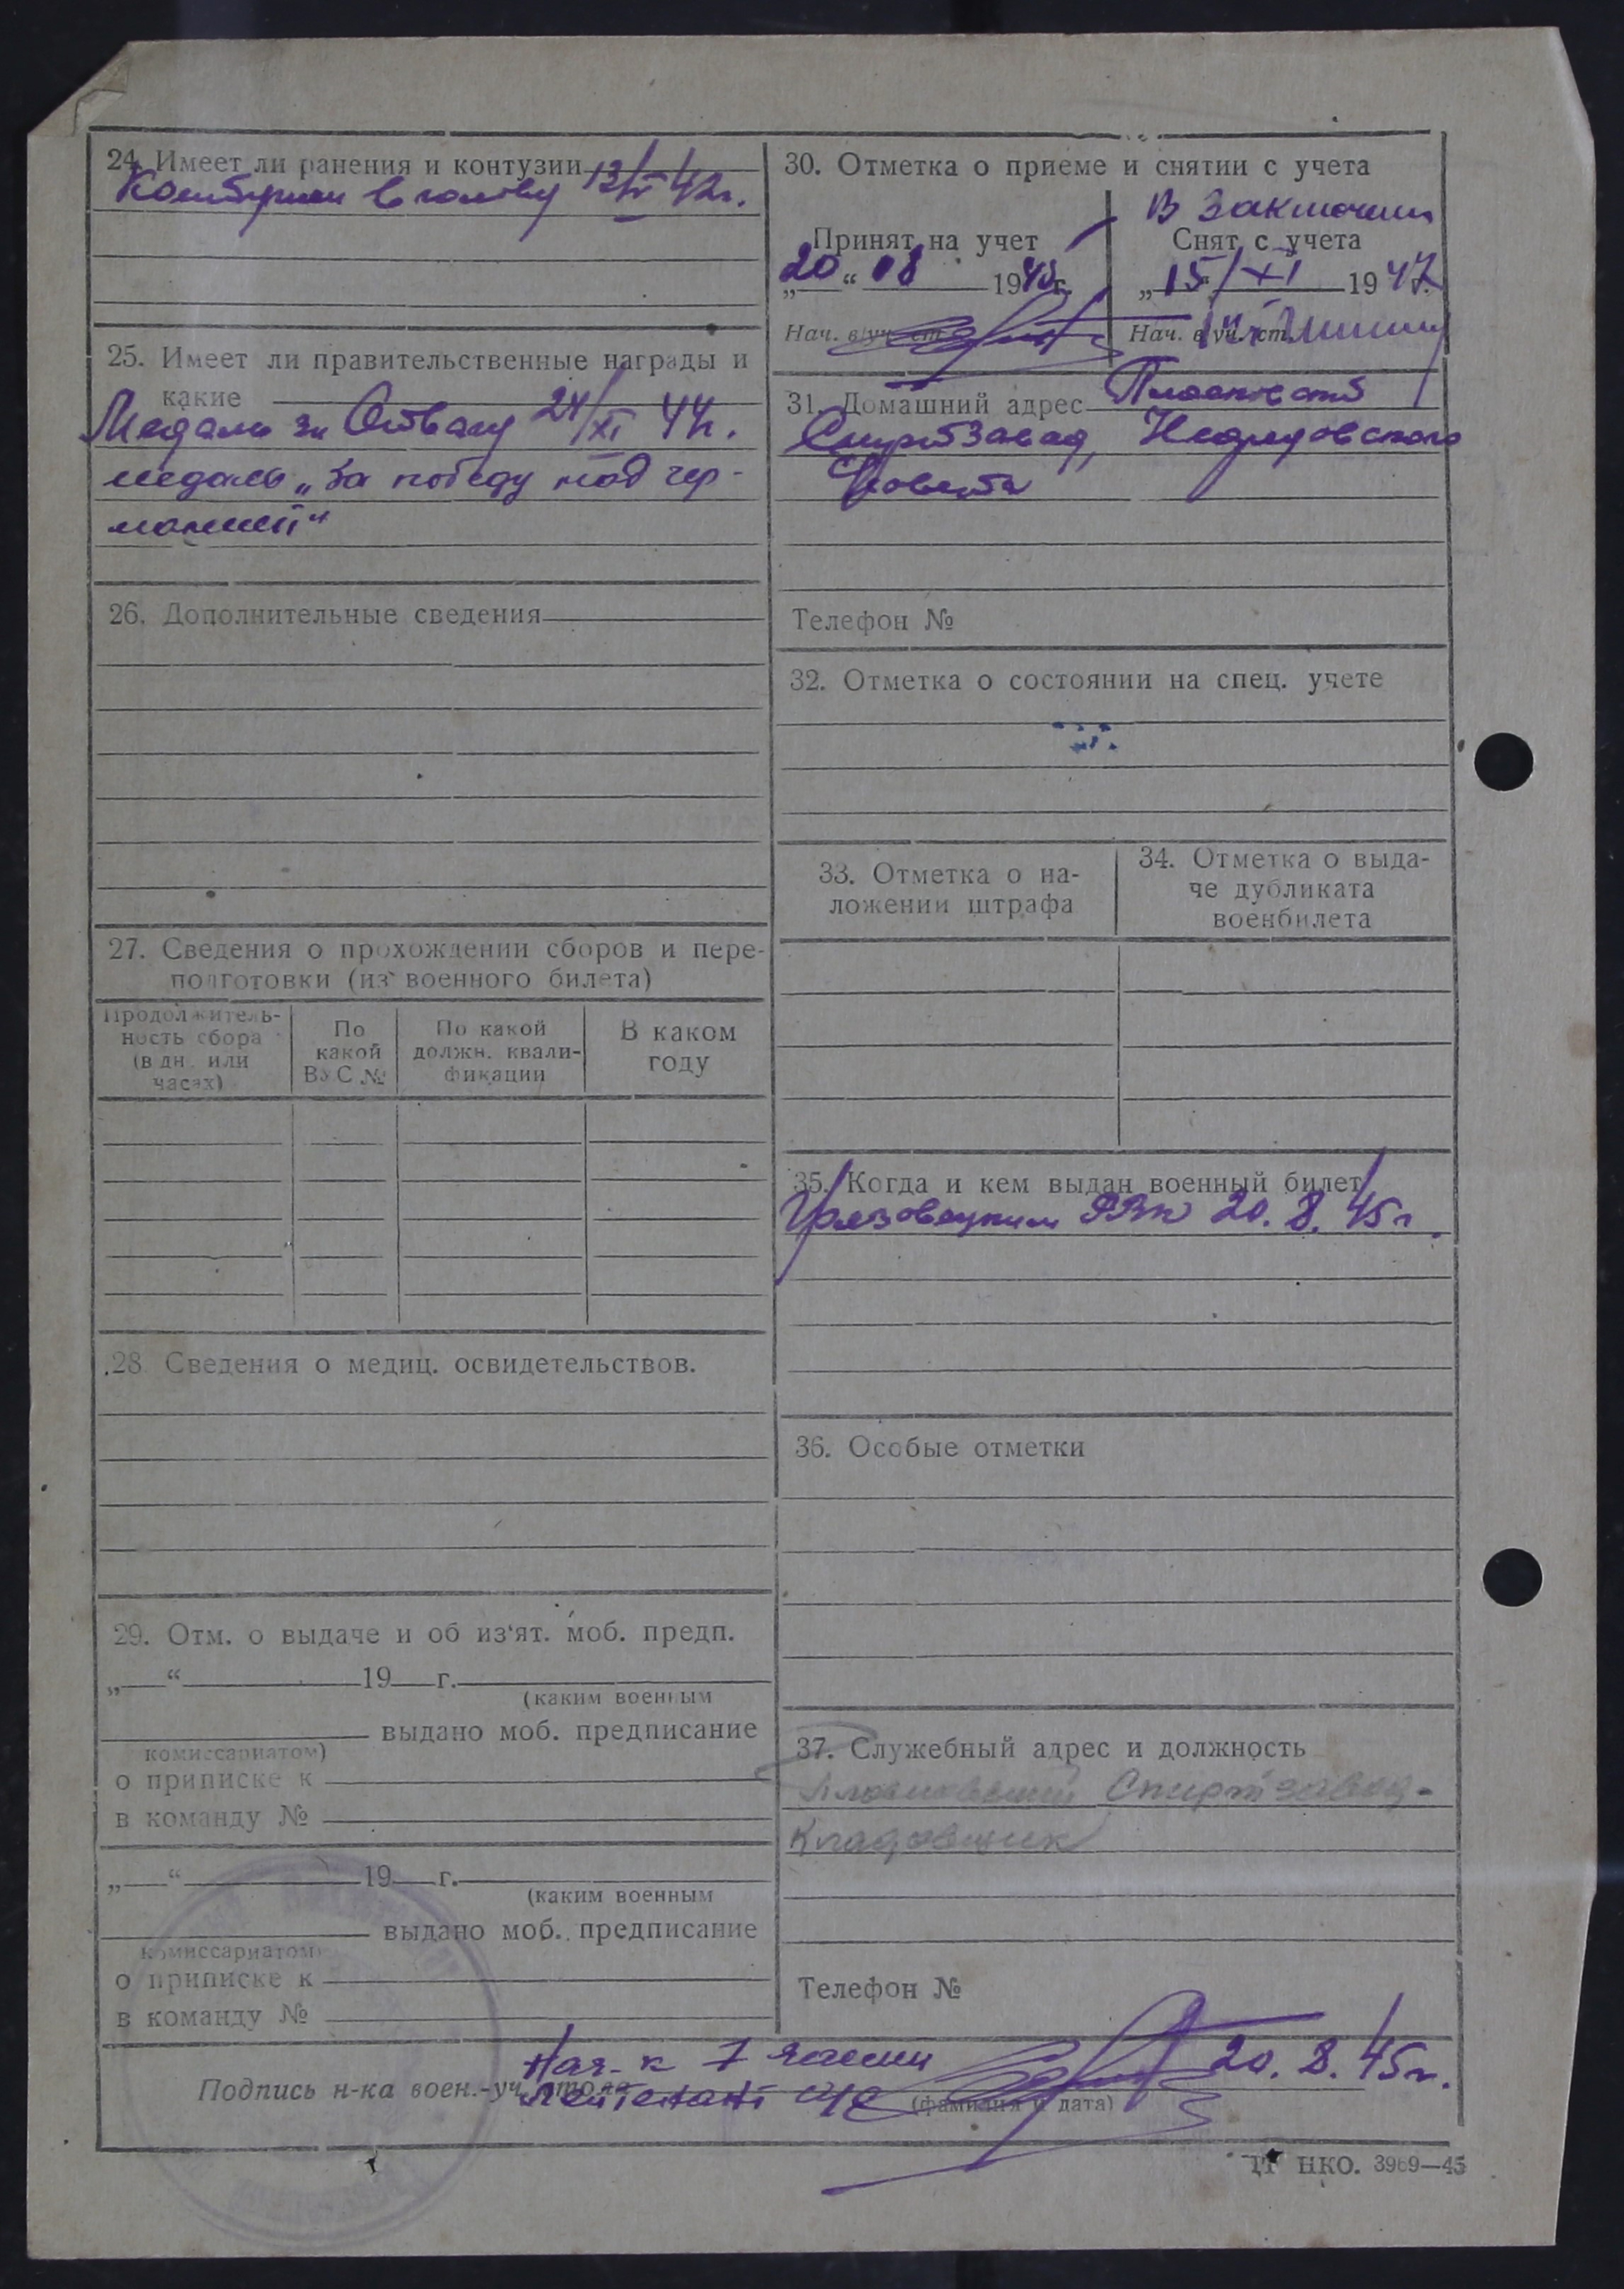 24. Имеет ли ранения и контузии 13/
в голову 42г.
25. Имеет ли правительственные награды и
какие
Медаль за Отвагу 24/XI 44г.
медаль „За победу над гер-
манией“
26. Дополнительные сведения
27. Сведения о прохождении сборов и пере-
подготовки (из военного билета)
Продолжитель-
ность сбора
(в дн. или
часах)
По
какой
ВУС №
По какой
должн. квали-
фикации
В каком
году
28. Сведения о медиц. освидетельствов.
29. Отм. о выдаче и об из‘ят. моб. предп.
„ “ 19 г.
(каким военным
выдано моб. предписание
комиссариатом)
о приписке к
в команду №
„ “ 19 г.
(каким военным
выдано моб. предписание
комиссариатом)
о приписке к
в команду №
30. Отметка о приеме и снятии с учета
Принят на учет
„20“ 08 1945г.
Нач. в/уч. ст.
В заключении
Снят с учета
„15/XI 1947
Нач. в/уч. ст.
31. Домашний адрес
Спиртзавод,
С/совета
Телефон №
32. Отметка о состоянии на спец. учете
33. Отметка о на-
ложении штрафа
34. Отметка о выда-
че дубликата
военбилета
35. Когда и кем выдан военный билет
РВК 20. 8. 45г.
36. Особые отметки
37. Служебный адрес и должность
Спиртзавод-
Кладовщик
Телефон №
Нач-к 1 части
Подпись н-ка воен.-уч. стола
лейтенант а/с
(фамилия и дата)
20. 8. 45г.
НКО. 3969—45